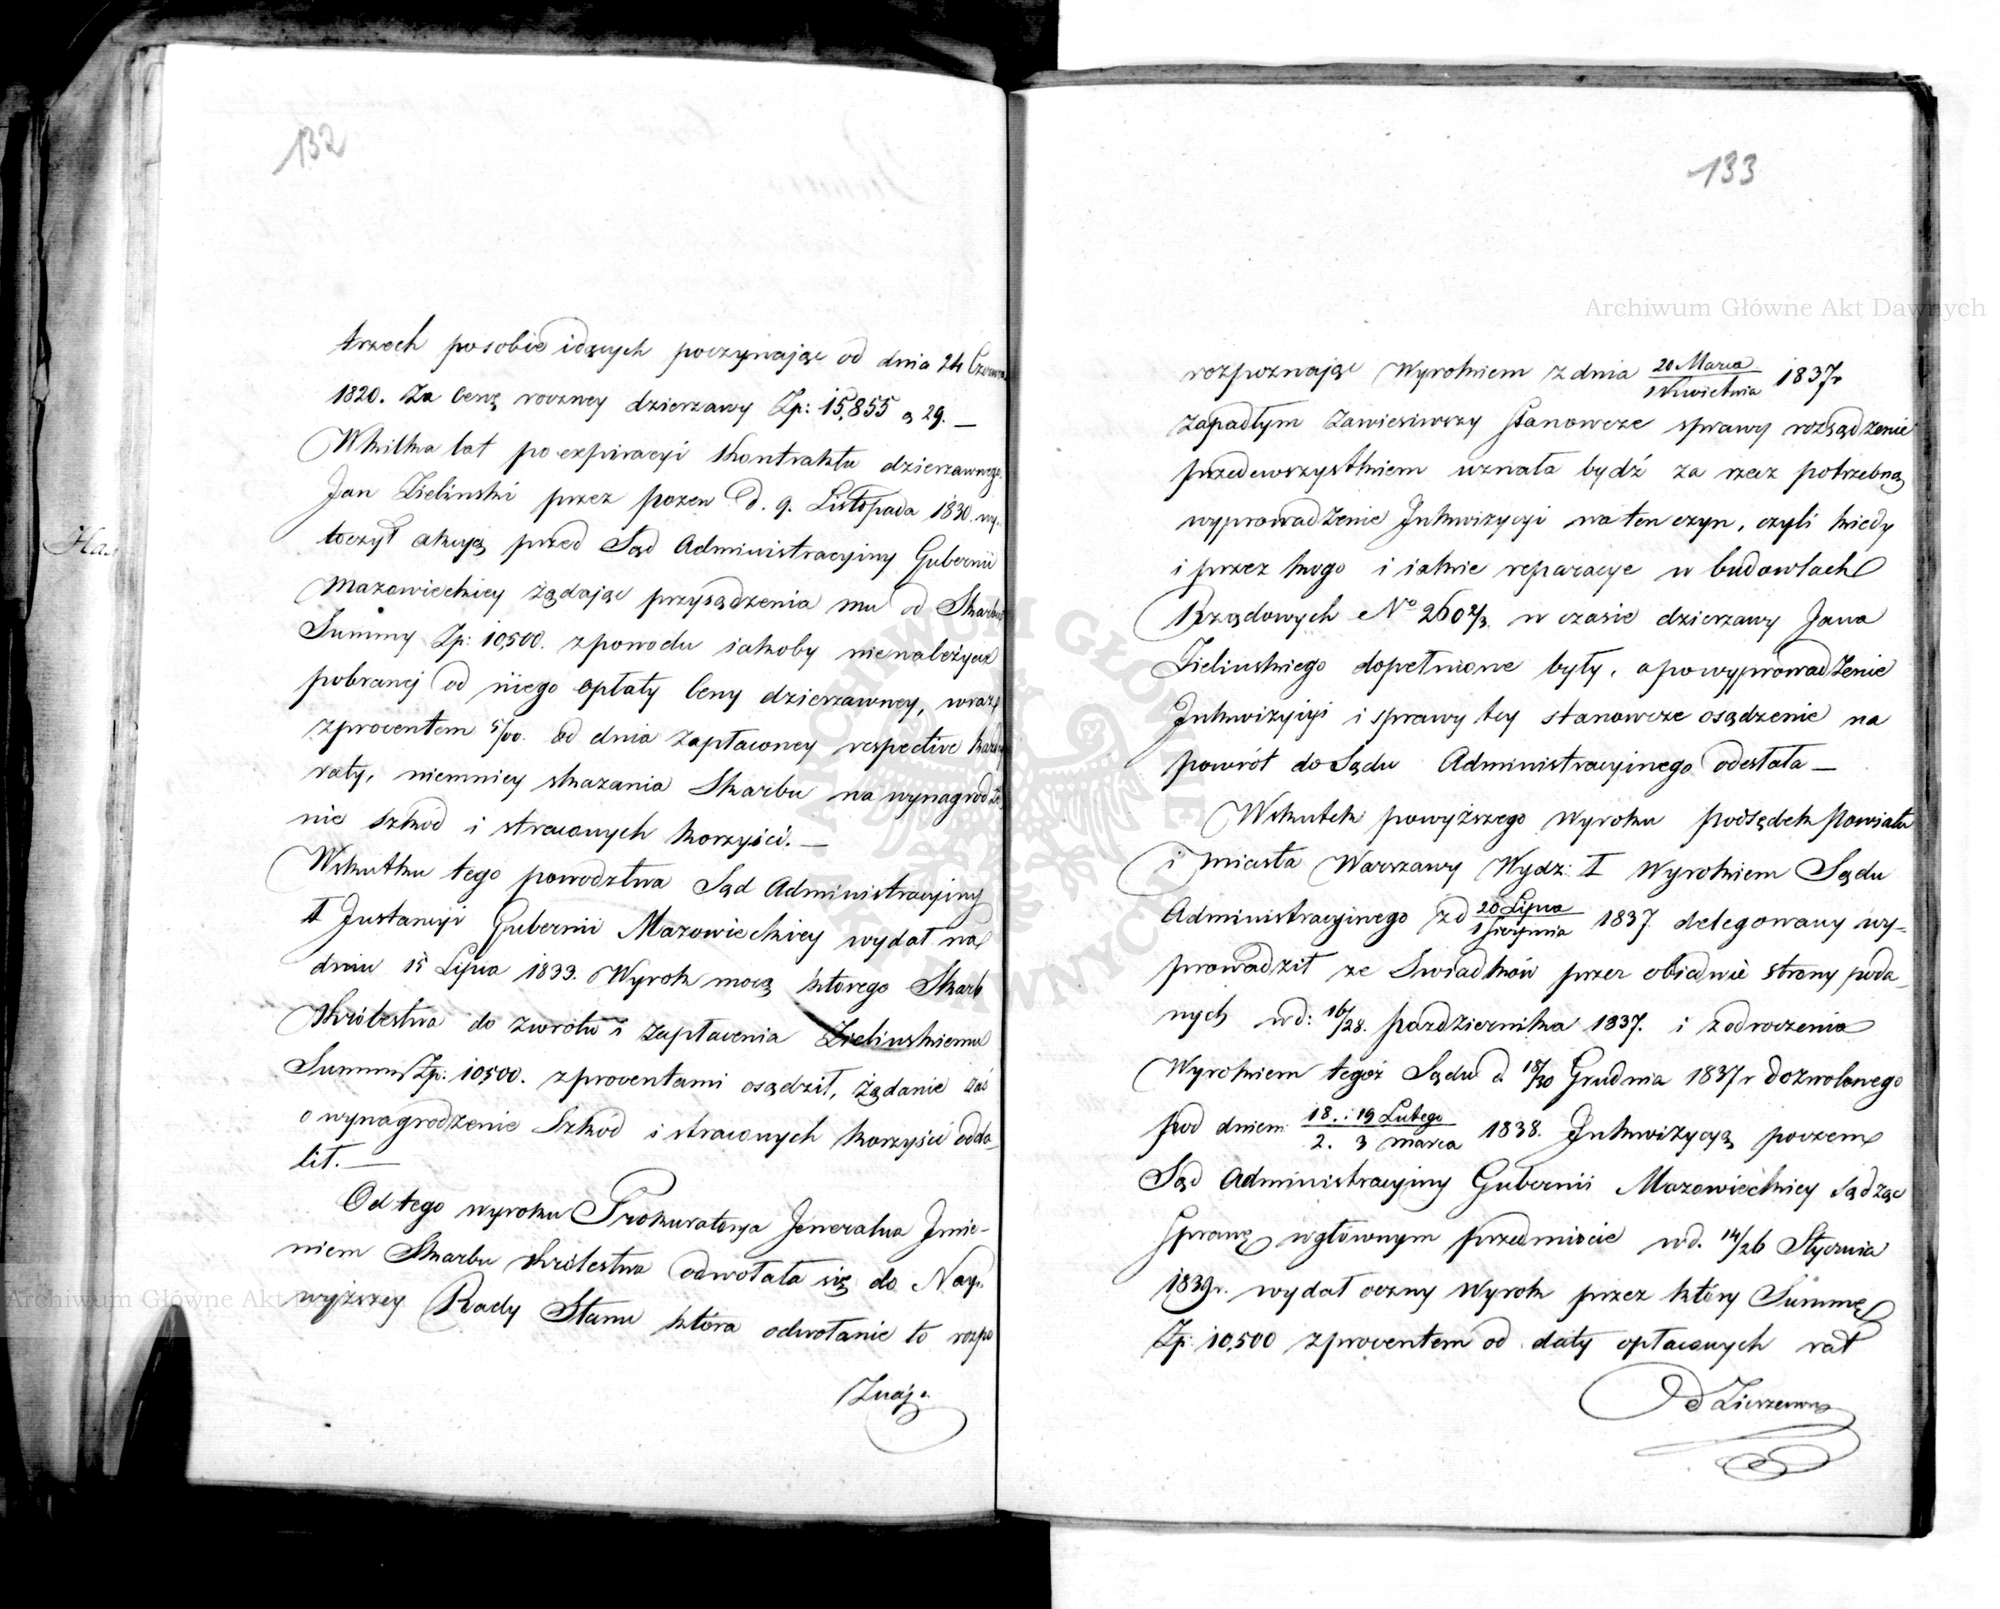 132
trzech po sobie idących poczynając od dnia 24 Czerwca
1820. Za Cenę roczney dzierzawy Zp: 15,855 g 29. —
W kilka lat po expiracyi Kontraktu dzierzawnego
Jan Zielinski przez pozew d. 9. Listopada 1830. wy-
toczył akcyą przed Sąd Administracyiny Gubernii
Mazowieckiey żądając przysądzenia mu od Skarbu
Summy Zp: 10,500. z powodu iakoby nienależycie
pobraney od niego opłaty Ceny dzierzawney, wraz
z procentem 5/00. od dnia zapłaconey respective każdey
raty, niemniey skazania Skarbu na wynagrodze
nie szkod i straconych korzyści. —
W skutku tego powodztwa Sąd Administracyiny
I Instancyi Gubernii Mazowieckiey wydał na
dniu 15 Lipca 1833. Wyrok mocą ktorego Skarb
Królestwa do zwrotu i zapłacenia Zielinskiemu
Summy Zp: 10500. z procentami osądził, żądanie zaś
o wynagrodzenie Szkód i straconych korzyści odda-
lił. —
Od tego wyroku Prokuratorya Jeneralna Imie-
niem Skarbu Królestwa odwołała się do Nay-
wyższey Rady Stanu która odwołanie to rozpo
znaj.
133
rozpoznając Wyrokiem z dnia 20 Marca / 1 Kwietnia 1837r
zapadłym zawiesiwszy stanowcze sprawy rozsądzenie
przedewszystkiem uznała bydź za rzecz potrzebną
wyprowadzenie Inkwizycyi na ten czyn, czyli kiedy
i przez kogo i iakie reparacye w budowlach
Rządowych No 2602/3. w czasie dzierzawy Jana
Zielinskiego dopełnione były, a po wyprowadzenie
Inkwizycyi i sprawy tey stanowcze osądzenie na
powrót do Sądu Administracyinego odesłała —
Wskutek powyższego Wyroku podsędek Powiatu
i Miasta Warszawy Wydz: I Wyrokiem Sądu
Administracyinego z d 20 Lipca / 1 Sierpnia 1837. delegowany wy-
prowadził ze Swiadków przez obiedwie strony poda-
nych w d: 16/28. Pazdziernika 1837. i z odroczenia
Wyrokiem tegoż Sądu d. 18/30 Grudnia 1837r dozwolonego
pod dniem 18. i 19 Lutego / 2. 3 Marca 1838. Inkwizycyą poczem
Sąd Administracyiny Gubernii Mazowieckiey sądząc
Sprawę w głównym przedmiocie w d. 14/26 Stycznia
1839r. wydał oczny Wyrok przez który Summę
Zp: 10,500 z procentem od daty opłaconych rat
Archiwum Główne Akt Dawnych